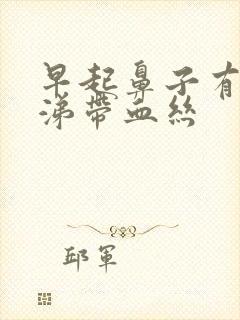 早起鼻子有
涕帶血絲
邱軍